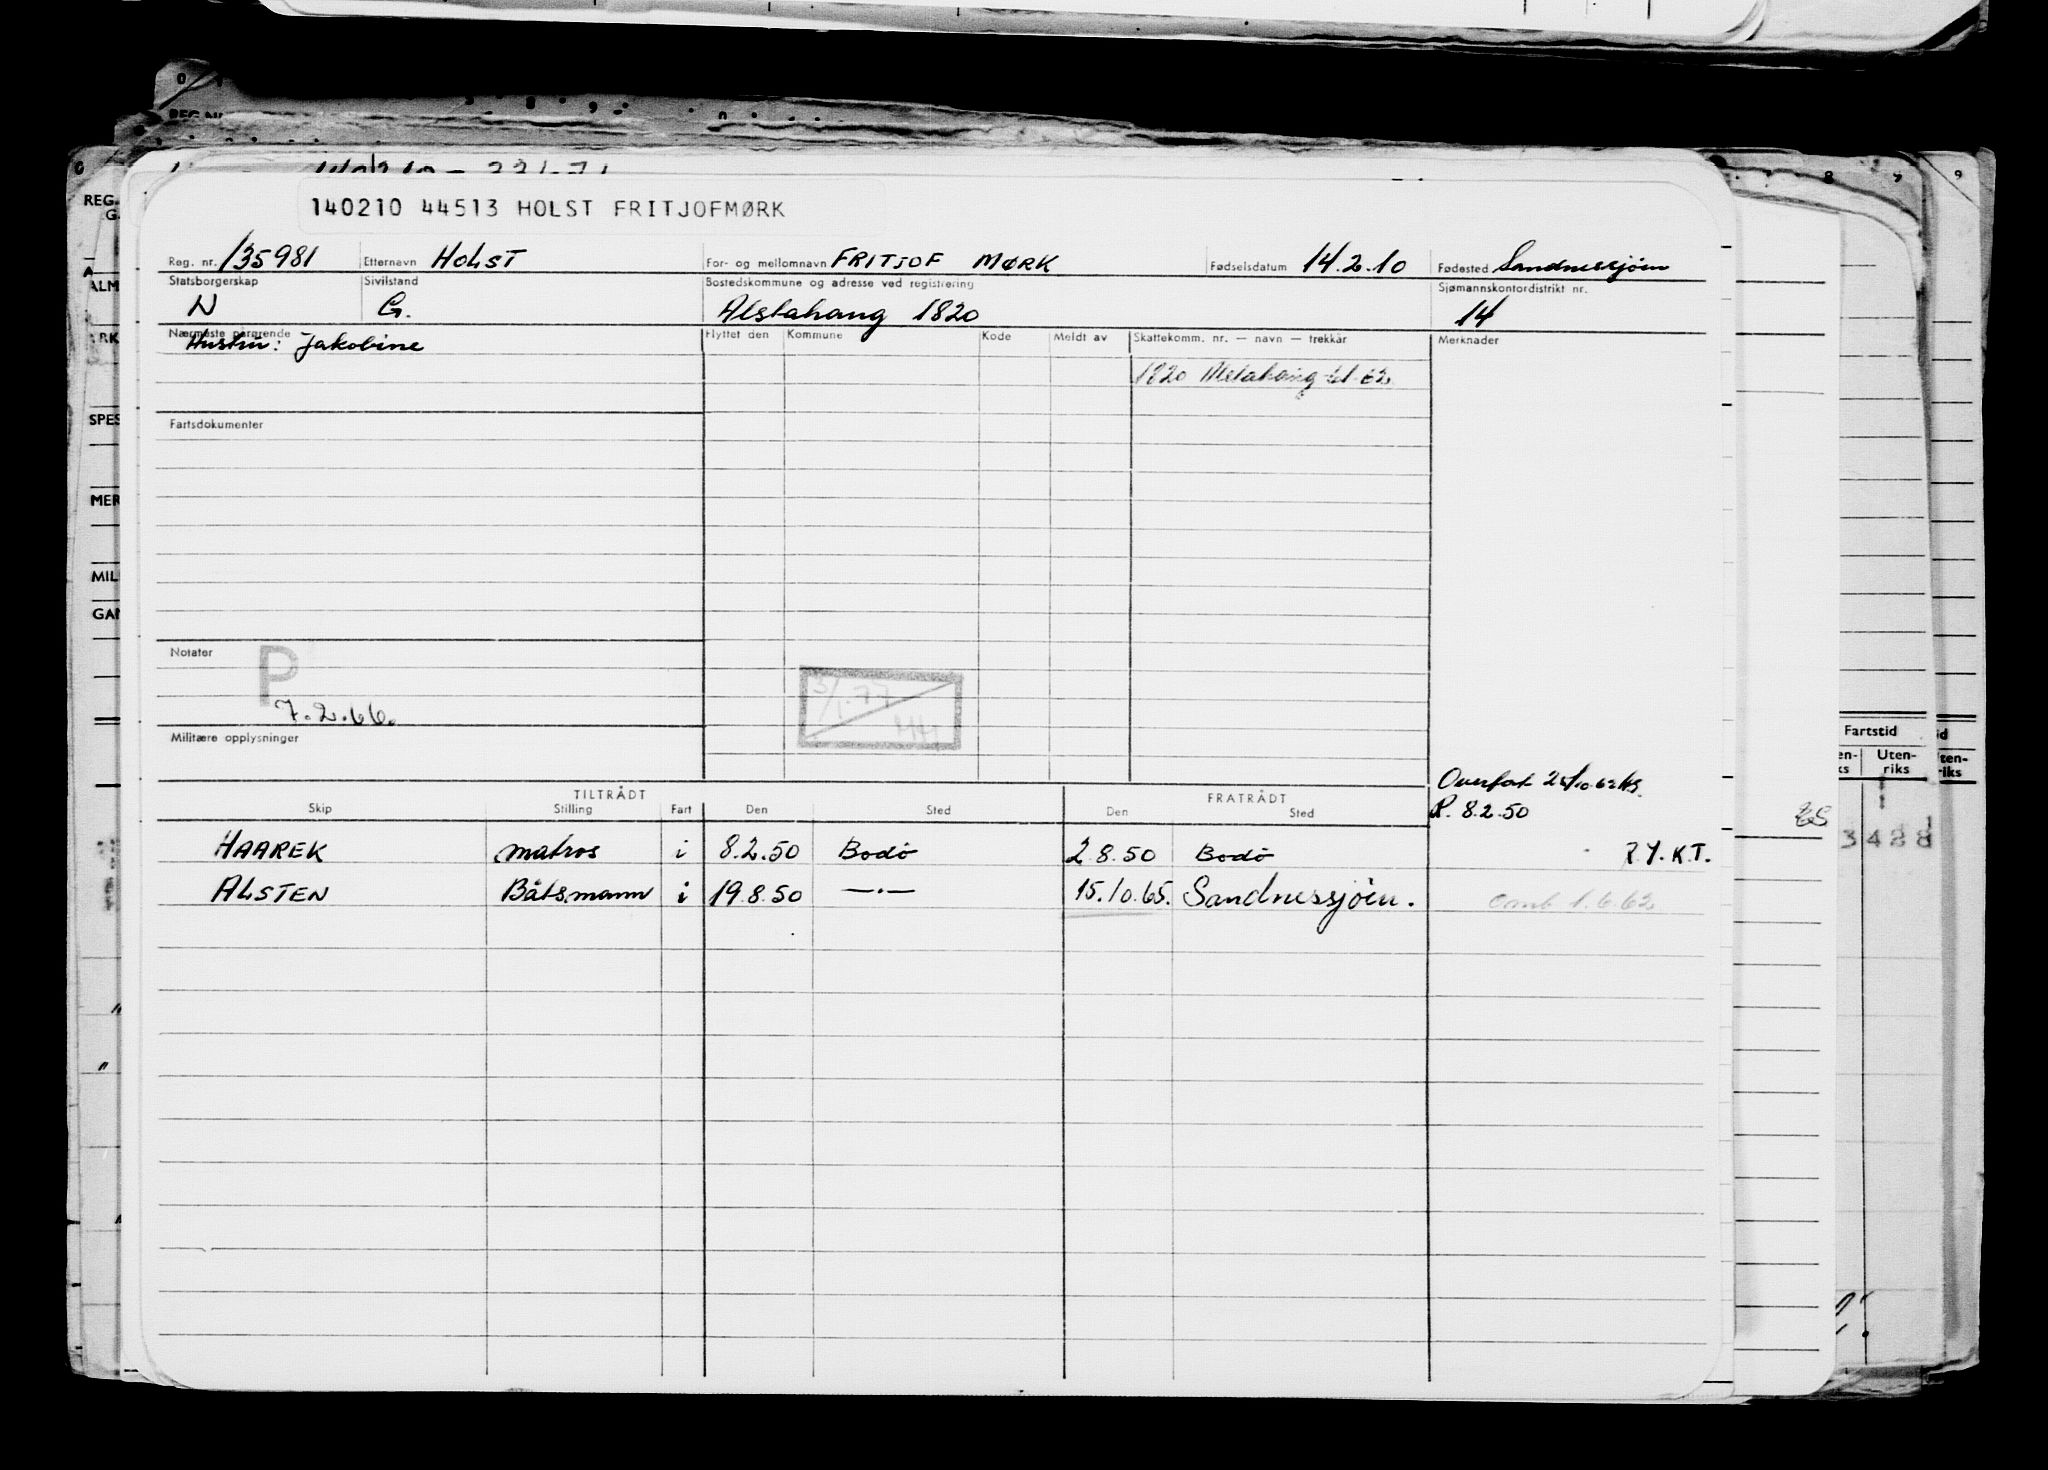 140210 44513 HOLST FRITJOFMØRK
Reg. nr. 135981 Etternavn HOLST For- og mellomnavn FRITJOF MØRK Fødselsdatum 14.2.10 Fødested Sandnessjøen
Statsborgerskap Sivilstand Bostedskommune og adresse ved registrering Sjømannskontordistrikt nr.
N G. Alstahaug 1820 14
Nærmeste pårørende Flyttet den Kommune Kode Meldt av Skattekomm. nr. — navn — trekkår Merknader
Hustru: Jakobine
1820 Alstahaug 61-62
Fartsdokumenter
Notater
P
7.2.66.
3/1.77
Militære opplysninger
Overført
R. 8.2.50
TILTRÅDT FRATRÅDT
Skip Stilling Fart Den Sted Den Sted
HAAREK matros i 8.2.50 Bodø 2.8.50 Bodø R.Y.K.T.
ALSTEN Båtsmann i 19.8.50 —·— 15.10.65. Sandnessjøen. Omb 1.6.62
REG.
G.
SPES
MER
MIL
GAN
Fartstid
Uten-
riks
3428
8 9